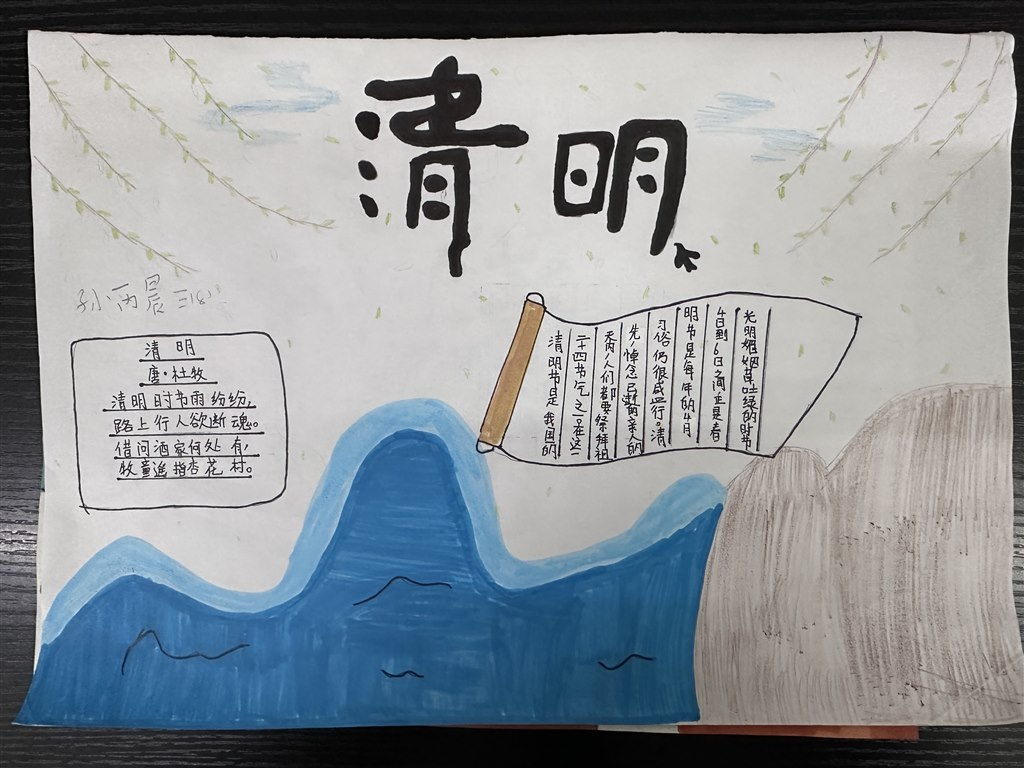 清明
孙丙晨
清 明
唐·杜牧
清明时节雨纷纷,
路上行人欲断魂。
借问酒家何处有,
牧童遥指杏花村。
清明节是我国
二十四节气之一在这一
天人们都要祭拜祖
先,悼念已逝亲人的
习俗仍很盛行。清
明节是每年的4月
4日到6日之间正是春
光明媚草吐绿的时节